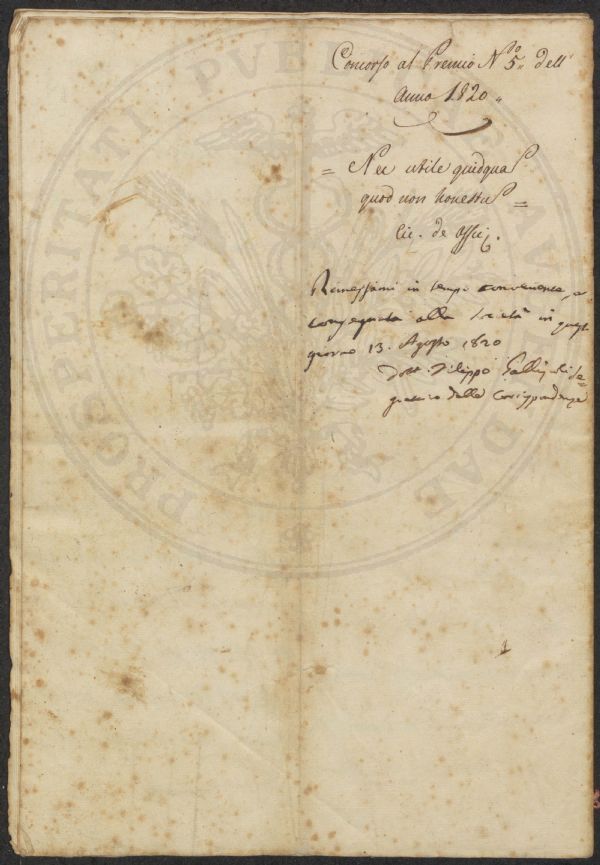 Concorso al Premio N.º 5.º dell'
Anno 1820.
= Nec utile quidqua
quod non honestu =
Cic. de Offic.
Rimessami in tempo conveniente, e
consegnata alla Società in questo
giorno 13. Agosto 1820
Dott. Filippo Gallizioli Se=
gretario della Corrispondenza
1
PROSPERITATI PUBLICAE